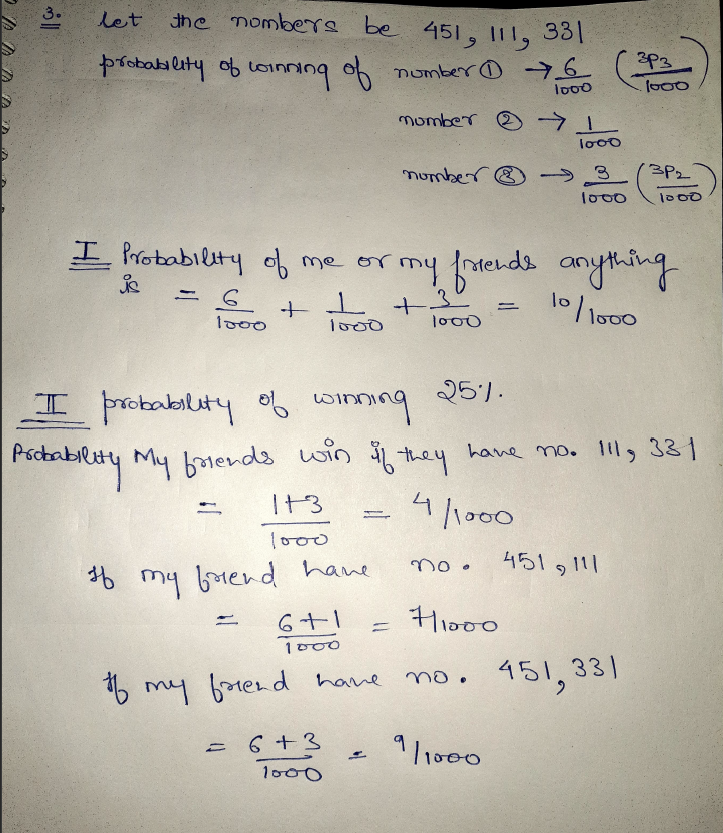 3. let the numbers be 451, 111, 331
probability of winning of number ① → 6/1000 (3P3/1000)
number ② → 1/1000
number ③ → 3/1000 (3P2/1000)
I Probability of me or my friends anything
is = 6/1000 + 1/1000 + 3/1000 = 10/1000
II probability of winning 25%.
Probability My friends win if they have no. 111, 331
= 1+3/1000 = 4/1000
If my friend have no. 451, 111
= 6+1/1000 = 7/1000
If my friend have no. 451, 331
= 6+3/1000 = 9/1000